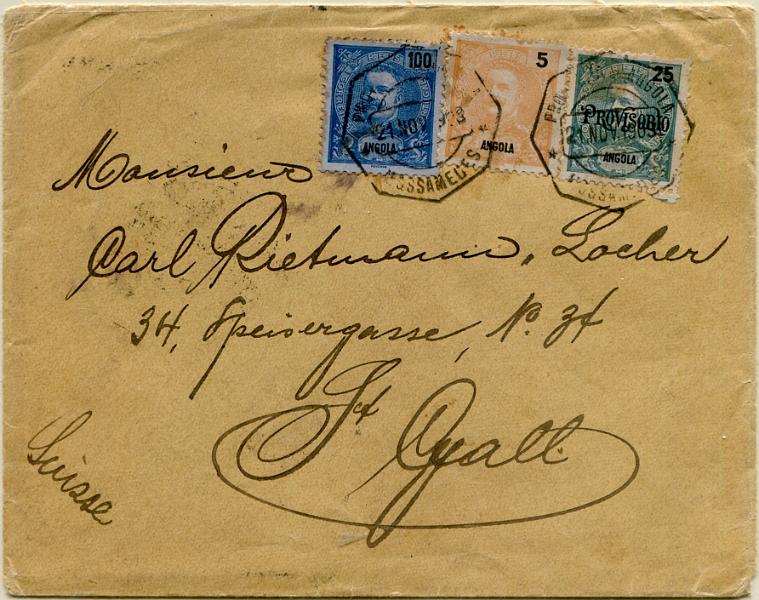 100
5
25
PROVISORIO
ANGOLA
ANGOLA
ANGOLA
21 NOV
21 NOV 1903
MOSSAMEDES
Monsieur
Carl Rietmann, Locher
34, Speisergasse, No. 34
St Gall.
Suisse